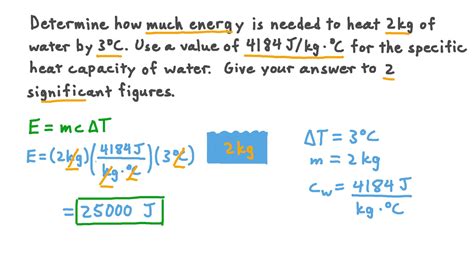 Determine how much energy is needed to heat 2kg of
water by 3°C. Use a value of 4184 J/kg·°C for the specific
heat capacity of water. Give your answer to 2
significant figures.
E = mcΔT
E = (2kg)(4184 J / kg·°C)(3°C)
= 25000 J
2kg
ΔT = 3°C
m = 2 kg
c_w = 4184 J / kg·°C